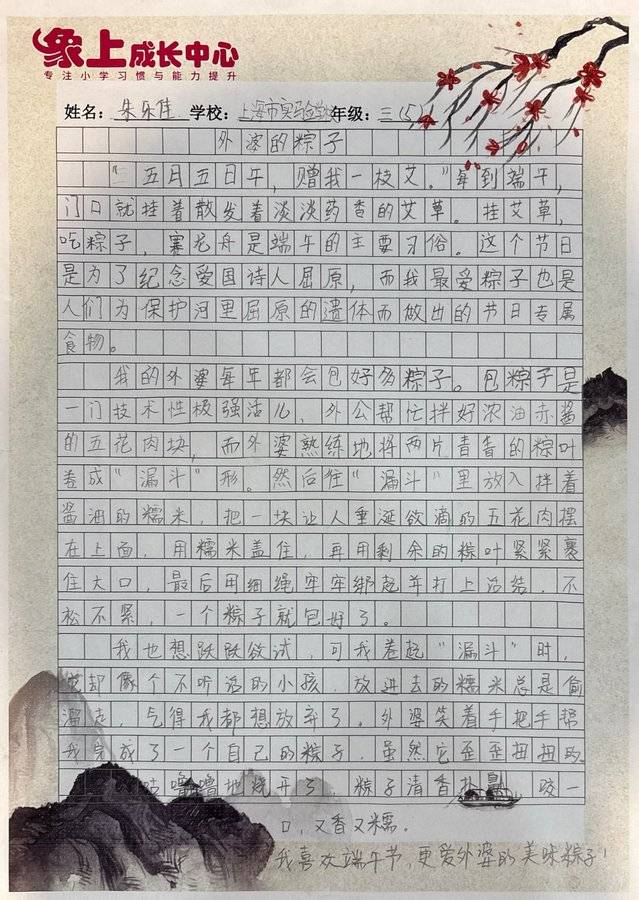 象上成长中心
专注小学习惯与能力提升
姓名：朱乐佳 学校：上海市实验学校 年级：三(5)
外婆的粽子
“五月五日午，赠我一枝艾。”每到端午，
门口就挂着散发着淡淡药香的艾草。挂艾草，
吃粽子，赛龙舟是端午的主要习俗。这个节日
是为了纪念爱国诗人屈原，而我最爱粽子也是
人们为保护河里屈原的遗体而做出的节日专属
食物。
我的外婆每年都会包好多粽子。包粽子是
一门技术性极强活儿，外公帮忙拌好浓油赤酱
的五花肉块，而外婆熟练地将两片青青的粽叶
卷成“漏斗”形。然后往“漏斗”里放入拌着
酱油的糯米，把一块让人垂涎欲滴的五花肉摆
在上面，用糯米盖住，再用剩余的粽叶紧紧裹
住大口，最后用细绳牢牢绑起并打上活结，不
松不紧，一个粽子就包好了。
我也想跃跃欲试，可我卷起“漏斗”时，
却像个不听话的小孩，放进去的糯米总是偷
溜走，气得我都想放弃了。外婆笑着手把手帮
我完成了一个自己的粽子，虽然它歪歪扭扭的。
咕噜噜地烧开了，粽子清香扑鼻，咬一
口，又香又糯。
我喜欢端午节，更爱外婆的美味粽子！